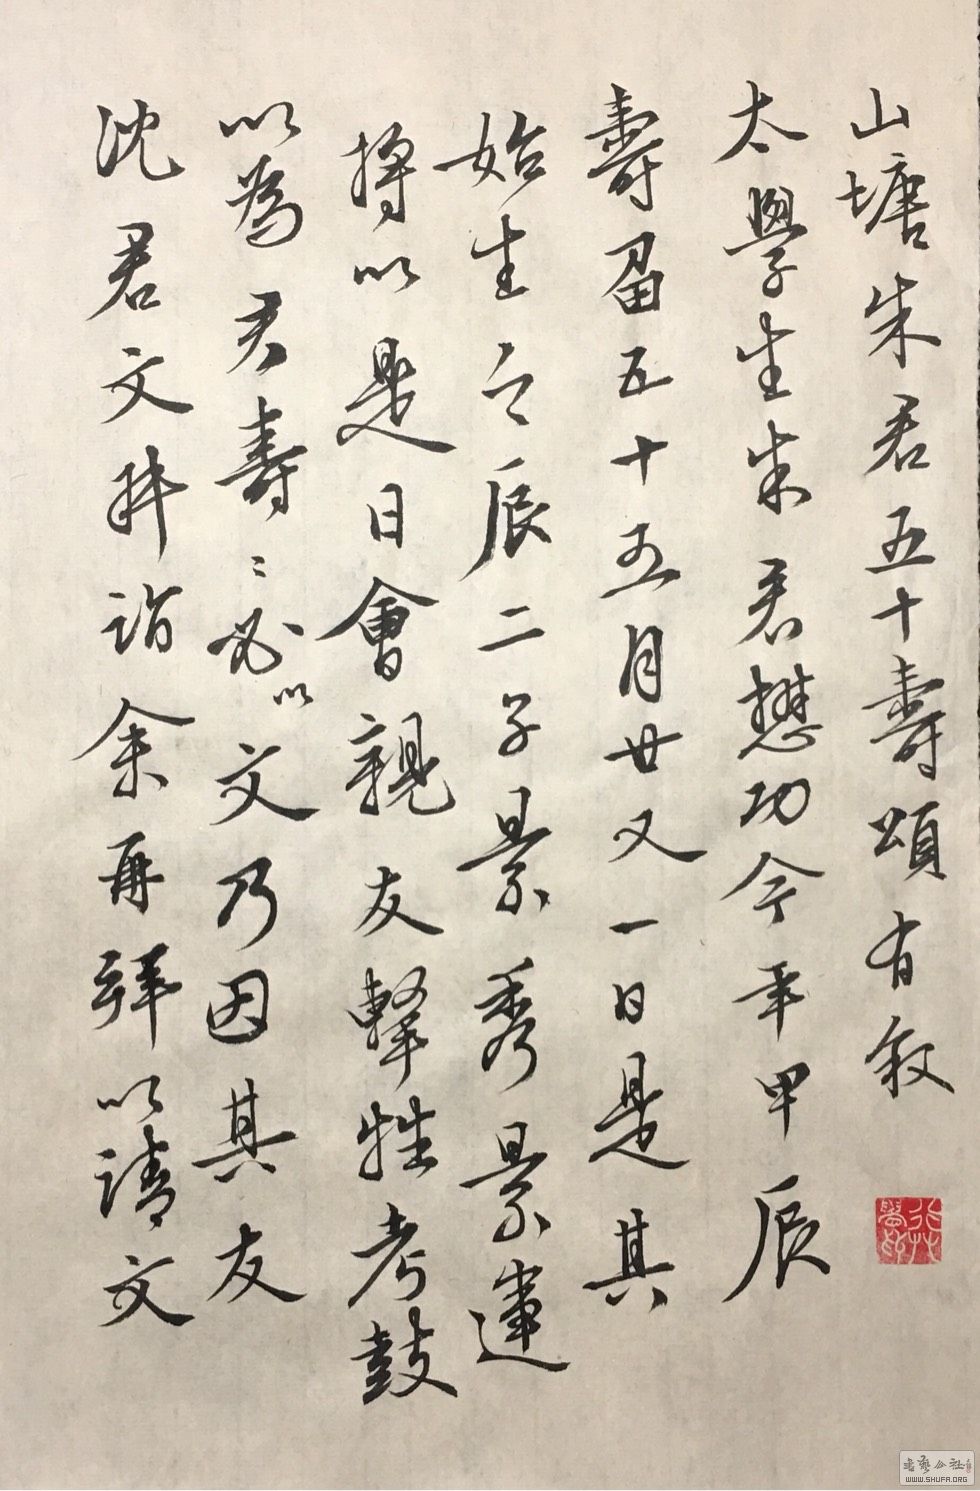 山塘朱君五十壽頌有敘
太學生朱君懋功今年甲辰
壽㽞五十五月廿又一日是其
始生之辰二子景秀景運
将以是日會親友擊牲考鼓
以為君壽〻必以文乃因其友
沈君文拜詣余再拜以請文
書藝公社
WWW.SHUFA.ORG